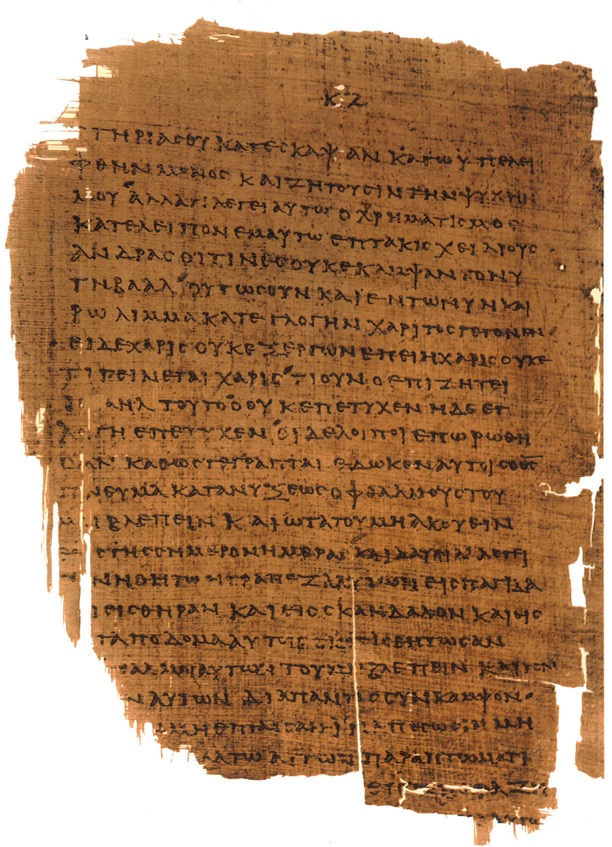 ΤΗΡΙΑϹΟΥ ΚΑΤΕϹΚΑΨΑΝ ΚΑΓΩ ΥΠΕΛΕΙ
ΦΘΗΝ ΜΟΝΟϹ ΚΑΙ ΖΗΤΟΥϹΙΝ ΤΗΝ ΨΥΧΗΝ
ΜΟΥ ΑΛΛΑ ΤΙ ΛΕΓΕΙ ΑΥΤΩ Ο ΧΡΗΜΑΤΙϹΜΟϹ
ΚΑΤΕΛΕΙΠΟΝ ΕΜΑΥΤΩ ΕΠΤΑΚΙϹΧΕΙΛΙΟΥϹ
ΑΝΔΡΑϹ ΟΙΤΙΝΕϹ ΟΥΚ ΕΚΑΜΨΑΝ ΓΟΝΥ
ΤΗ ΒΑΑΛ ΟΥΤΩϹ ΟΥΝ ΚΑΙ ΕΝ ΤΩ ΝΥΝ ΚΑΙ
ΡΩ ΛΙΜΜΑ ΚΑΤ ΕΓΛΟΓΗΝ ΧΑΡΙΤΟϹ ΓΕΓΟΝΕΝ
ΕΙ ΔΕ ΧΑΡΙϹ ΟΥΚ ΕΞ ΕΡΓΩΝ ΕΠΕΙ Η ΧΑΡΙϹ ΟΥΚΕ
ΤΙ ΓΕΙΝΕΤΑΙ ΧΑΡΙϹ ΤΙ ΟΥΝ Ο ΕΠΙΖΗΤΕΙ
ΑΗΛ ΤΟΥΤΟ ΟΥΚ ΕΠΕΤΥΧΕΝ Η ΔΕ ΕΓ
ΓΗ ΕΠΕΤΥΧΕΝ ΟΙ ΔΕ ΛΟΙΠΟΙ ΕΠΩΡΩΘΗ
ΑΝ ΚΑΘΩϹ ΓΕΓΡΑΠΤΑΙ ΕΔΩΚΕΝ ΑΥΤΟΙϹ Ο ΘϹ
ΠΝΕΥΜΑ ΚΑΤΑΝΥΞΕΩϹ ΟΦΘΑΛΜΟΥϹ ΤΟΥ
ΒΛΕΠΕΙΝ ΚΑΙ ΩΤΑ ΤΟΥ ΜΗ ΑΚΟΥΕΙΝ
ϹΤΗϹ ϹΗΜΕΡΟΝ ΗΜΕΡΑϹ ΚΑΙ ΔΑΥΕΙΔ ΛΕΓΕΙ
ΝΗΘΗΤΩ Η ΤΡΑΠΕΖΑ ΑΥΤΩΝ ΕΙϹ ΠΑΓΙΔΑ
ΕΙϹ ΘΗΡΑΝ ΚΑΙ ΕΙϹ ϹΚΑΝΔΑΛΟΝ ΚΑΙ ΕΙϹ
ΤΑΠΟΔΟΜΑ ΑΥΤΟΙϹ ϹΚΟΤΙϹΘΗΤΩϹΑΝ
ΘΑΛΜΟΙ ΑΥΤΩΝ ΤΟΥ ΜΗ ΒΛΕΠΕΙΝ ΚΑΙ ΤΟΝ
Ν ΑΥΤΩΝ ΔΙΑ ΠΑΝΤΟϹ ϹΥΝΚΑΜΨΟΝ
ΜΗ ΕΠΤΑΙϹΑΝ ΙΝΑ ΠΕϹΩϹΙΝ ΜΗ
ΤΩ ΑΥΤΩΝ ΠΑΡΑΠΤΩΜΑΤΙ